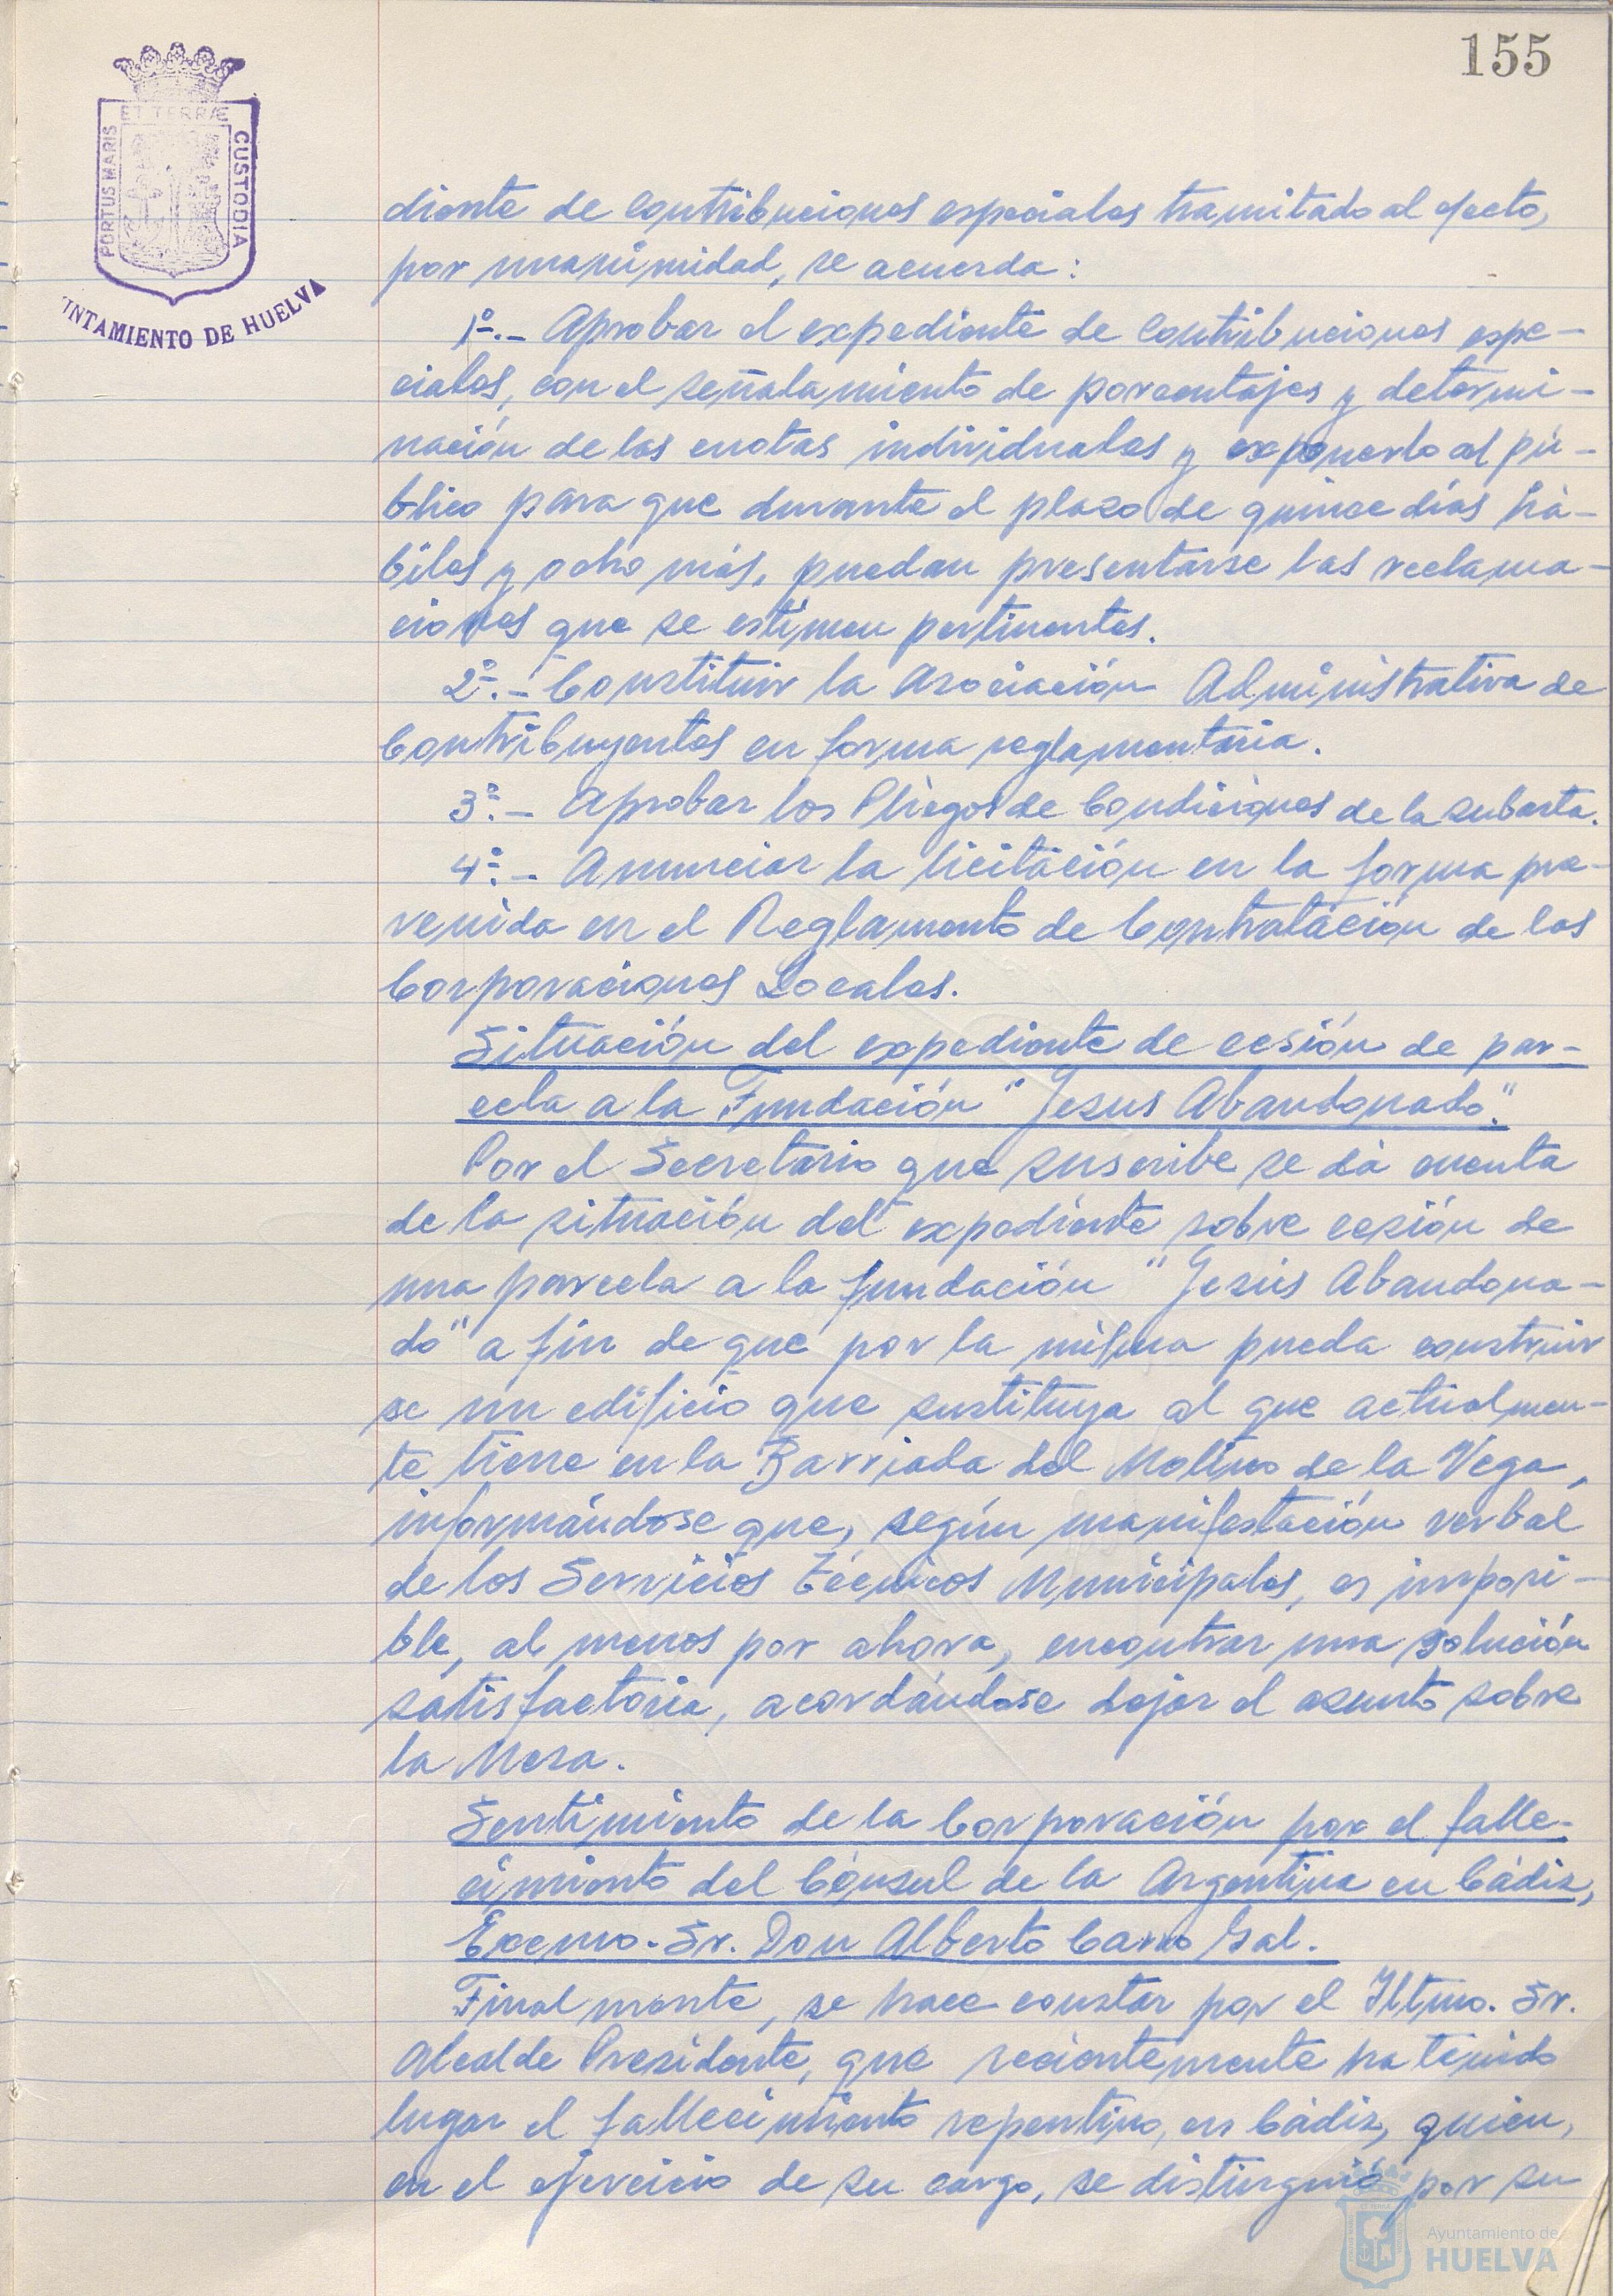 155
ET TERRÆ
PORTUS MARIS
CUSTODIA
UNTAMIENTO DE HUELVA
diente de contribuciones especiales tramitado al efecto,
por unanimidad, se acuerda:
1º.- Aprobar el expediente de Contribuciones espe-
ciales, con el señalamiento de porcentajes y determi-
nación de las cuotas individuales y exponerlo al pú-
blico para que durante el plazo de quince días há-
biles y ocho más, puedan presentarse las reclama-
ciones que se estimen pertinentes.
2º.- Constituir la Asociación Administrativa de
Contribuyentes en forma reglamentaria.
3º.- Aprobar los Pliegos de Condiciones de la subasta.
4º.- Anunciar la licitación en la forma pre-
venida en el Reglamento de Contratación de las
Corporaciones Locales.
Situación del expediente de cesión de par-
cela a la Fundación "Jesus Abandonado".
Por el Secretario que suscribe se dá cuenta
de la situación del expediente sobre cesión de
una parcela a la fundación "Jesús Abandona-
do" a fin de que por la misma pueda construir
se un edificio que sustituya al que actualmen-
te tiene en la Barriada del Molino de la Vega,
informándose que, según manifestación verbal
de los Servicios Técnicos Municipales, es imposi-
ble, al menos por ahora, encontrar una solución
satisfactoria, acordándose dejar el asunto sobre
la Mesa.
Sentimiento de la Corporación por el falle-
cimiento del Cónsul de la Argentina en Cádiz,
Excmo. Sr. Don Alberto Caro Gal.
Finalmente, se hace constar por el Iltmo. Sr.
Alcalde Presidente, que recientemente ha tenido
lugar el fallecimiento repentino, en Cádiz, quien,
en el ejercicio de su cargo, se distinguió por su
Ayuntamiento de
HUELVA